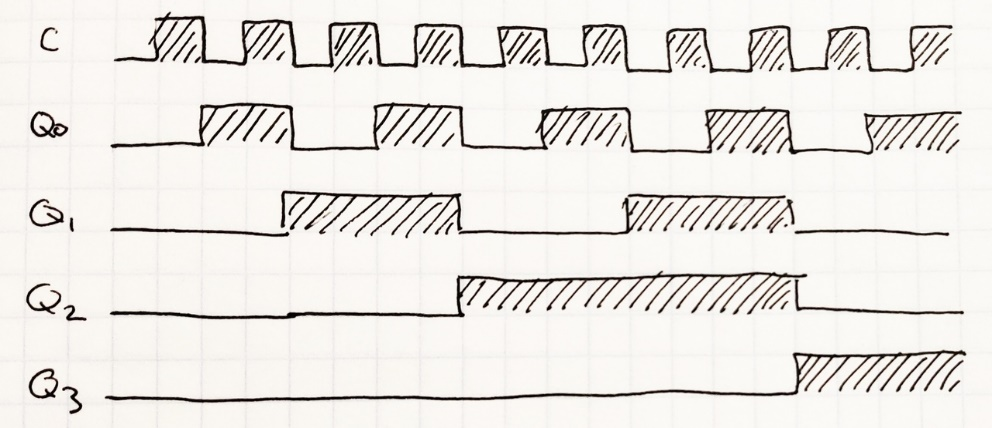 C
Q0
Q1
Q2
Q3